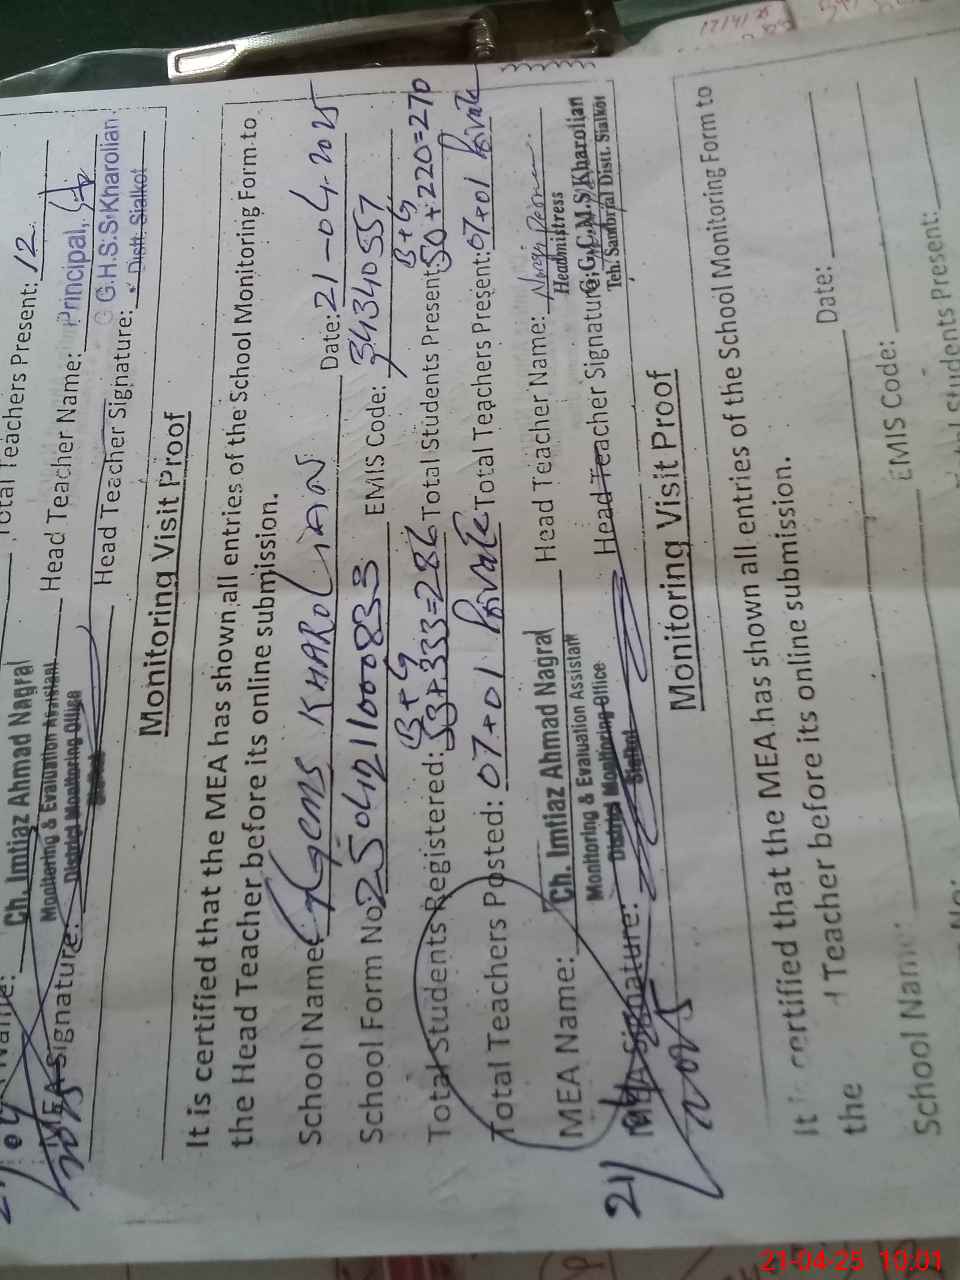 17/4/25
Total Teachers Present: 12
Ch. Imtiaz Ahmad Nagral
Monitoring & Evaluation Assistant
District Monitoring Office
Head Teacher Name:
Principal,
G.H.S.S Kharolian
Distt. Sialkot
MEA Signature:
Head Teacher Signature:
Monitoring Visit Proof
It is certified that the MEA has shown all entries of the School Monitoring Form to
the Head Teacher before its online submission.
School Name: GGCMS KHAROLIAN Date: 21-04-2025
School Form No: EMIS Code: 34340557
B+G B+G
Total Students Registered: Total Students Present: 50+220=270
Total Teachers Posted: 07+01 Private Total Teachers Present: 07+01 Private
MEA Name: Ch. Imtiaz Ahmad Nagral Head Teacher Name:
Monitoring & Evaluation Assistant
District Monitoring Office
Sialkot
Headmistress
G.G.C.M.S Kharolian
Teh. Sambrial Distt. Sialkot
MEA Signature: Head Teacher Signature:
21/
Monitoring Visit Proof
It is certified that the MEA has shown all entries of the School Monitoring Form to
the Teacher before its online submission.
School Name: Date:
EMIS Code:
Students Present:
21-04-25 10:01